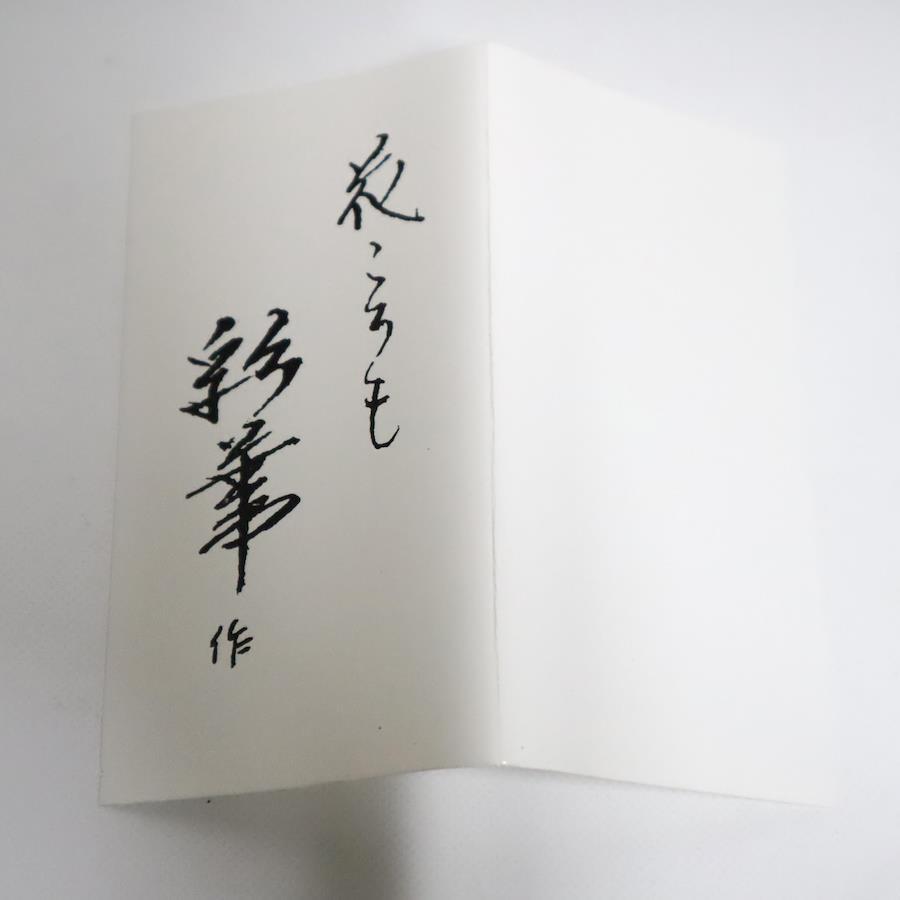 花ごろも
彩華
作